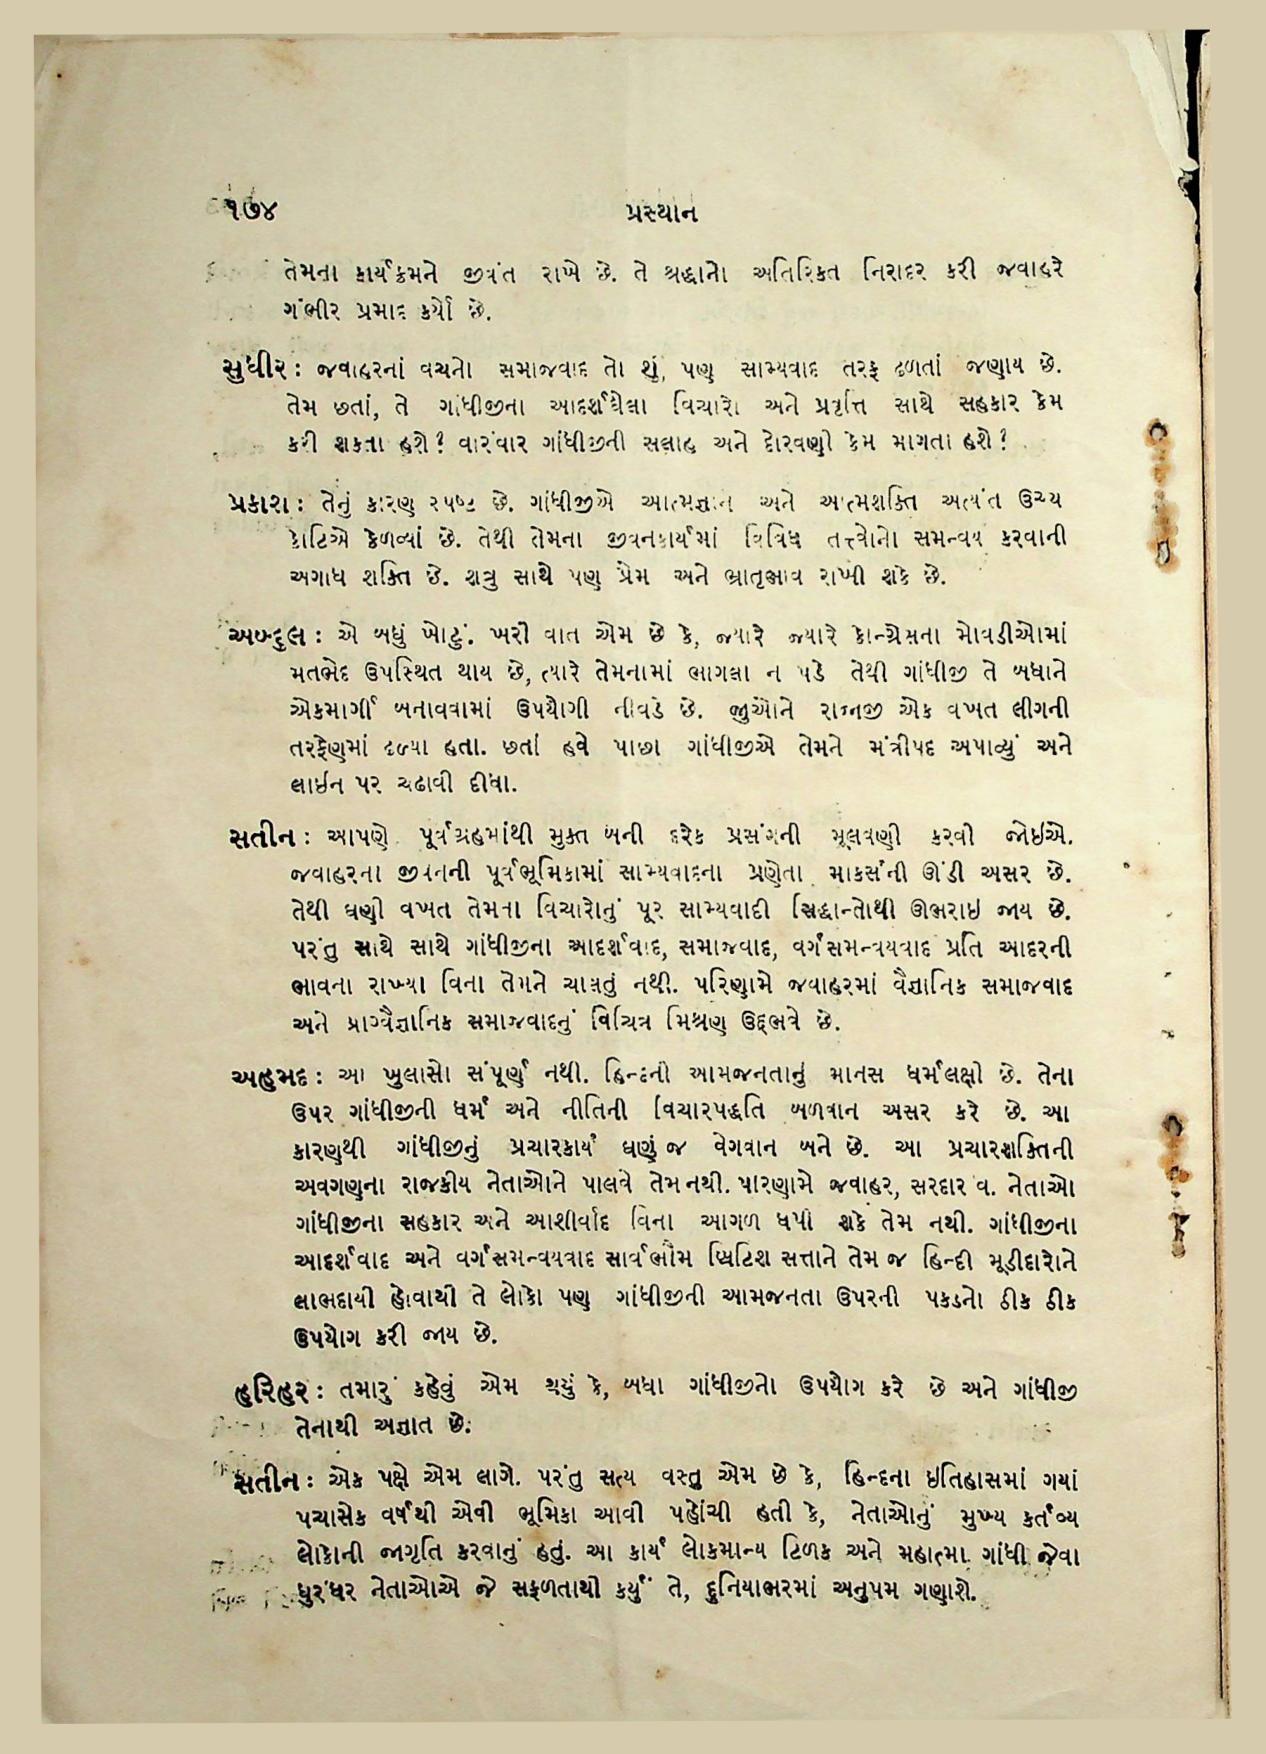 ૧૭૪
પ્રસ્થાન
તેમના કાર્યક્રમને જીવંત રાખે છે. તે શ્રદ્ધાનો અતિરિકત નિરાદર કરી જવાહરે
ગંભીર પ્રમાદ કર્યો છે.
સુધીર : જવાહરનાં વચનો સમાજવાદ તો શું, પણ સામ્યવાદ તરફ ઢળતાં જણાય છે.
તેમ છતાં, તે ગાંધીજીના આદર્શઘેલા વિચારો અને પ્રવૃત્તિ સાથે સહકાર કેમ
કરી શકતા હશે? વારંવાર ગાંધીજીની સલાહ અને દોરવણી કેમ માગતા હશે?
પ્રકાશ : તેનું કારણ સ્પષ્ટ છે. ગાંધીજીએ આત્મજ્ઞાન અને આત્મશક્તિ અત્યંત ઉચ્ચ
કોટિએ કેળવ્યાં છે. તેથી તેમના જીવનકાર્યમાં વિવિધ તત્ત્વોનો સમન્વય કરવાની
અગાધ શક્તિ છે. શત્રુ સાથે પણ પ્રેમ અને ભ્રાતૃભાવ રાખી શકે છે.
અબ્દુલ : એ બધું ખોટું. ખરી વાત એમ છે કે, જ્યારે જ્યારે કોન્ગ્રેસના મોવડીઓમાં
મતભેદ ઉપસ્થિત થાય છે, ત્યારે તેમનામાં ભાગલા ન પડે તેથી ગાંધીજી તે બધાને
એકમાર્ગી બનાવવામાં ઉપયોગી નીવડે છે. જુઓને રાજાજી એક વખત લીગની
તરફેણમાં ઢળ્યા હતા. છતાં હવે પાછા ગાંધીજીએ તેમને મંત્રીપદ અપાવ્યું અને
લાઈન પર ચઢાવી દીધા.
સતીન : આપણે પૂર્વગ્રહમાંથી મુક્ત બની દરેક પ્રસંગની મૂલવણી કરવી જોઈએ.
જવાહરના જીવનની પૂર્વભૂમિકામાં સામ્યવાદના પ્રણેતા માકર્સની ઊંડી અસર છે.
તેથી ઘણી વખત તેમના વિચારોનું પૂર સામ્યવાદી સિદ્ધાન્તોથી ઊભરાઇ જાય છે.
પરંતુ સાથે સાથે ગાંધીજીના આદર્શવાદ, સમાજવાદ, વર્ગસમન્વયવાદ પ્રતિ આદરની
ભાવના રાખ્યા વિના તેમને ચાલતું નથી. પરિણામે જવાહરમાં વૈજ્ઞાનિક સમાજવાદ
અને પ્રાગ્વૈજ્ઞાનિક સમાજવાદનું વિચિત્ર મિશ્રણ ઉદ્દભવે છે.
અહમદ : આ ખુલાસો સંપૂર્ણ નથી. હિન્દની આમજનતાનું માનસ ધર્મલક્ષી છે. તેના
ઉપર ગાંધીજીની ધર્મ અને નીતિની વિચારપદ્ધતિ બળવાન અસર કરે છે. આ
કારણથી ગાંધીજીનું પ્રચારકાર્ય ઘણું જ વેગવાન બને છે. આ પ્રચારશક્તિની
અવગણના રાજકીય નેતાઓને પાલવે તેમ નથી. પરિણામે જવાહર, સરદાર વ. નેતાઓ
ગાંધીજીના સહકાર અને આશીર્વાદ વિના આગળ ધપી શકે તેમ નથી. ગાંધીજીના
આદર્શવાદ અને વર્ગસમન્વયવાદ સાર્વભૌમ બ્રિટિશ સત્તાને તેમ જ હિન્દી મૂડીદારોને
લાભદાયી હોવાથી તે લોકો પણ ગાંધીજીની આમજનતા ઉપરની પકડનો ઠીક ઠીક
ઉપયોગ કરી જાય છે.
હરિહર : તમારું કહેવું એમ થયું કે, બધા ગાંધીજીનો ઉપયોગ કરે છે અને ગાંધીજી
તેનાથી અજ્ઞાત છે.
સતીન : એક પક્ષે એમ લાગે. પરંતુ સત્ય વસ્તુ એમ છે કે, હિન્દના ઇતિહાસમાં ગયાં
પચાસેક વર્ષથી એવી ભૂમિકા આવી પહોંચી હતી કે, નેતાઓનું મુખ્ય કર્તવ્ય
લોકોની જાગૃતિ કરવાનું હતું. આ કાર્ય લોકમાન્ય ટિળક અને મહાત્મા ગાંધી જેવા
ધુરંધર નેતાઓએ જે સફળતાથી કર્યું તે, દુનિયાભરમાં અનુપમ ગણાશે.